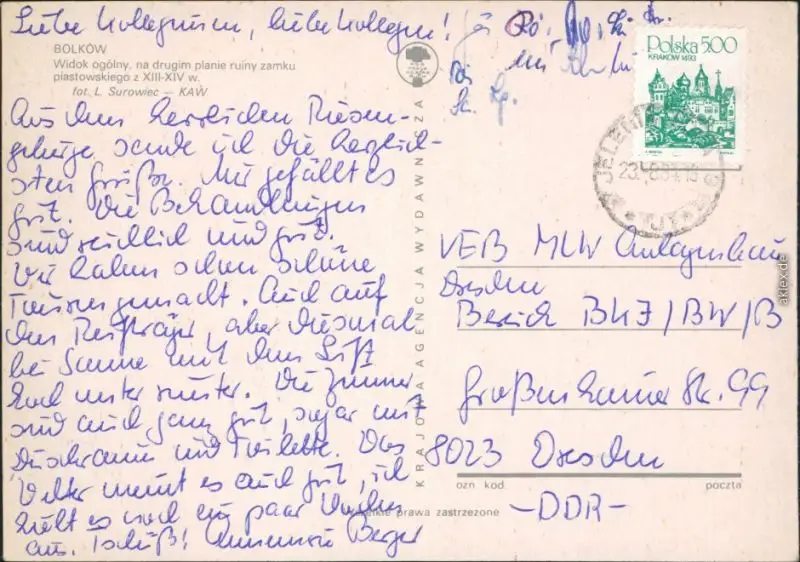 Liebe Kolleginnen, liebe Kollegen!
BOLKÓW
Widok ogólny, na drugim planie ruiny zamku
piastowskiego z XIII-XIV w.
fot. L. Surowiec — KAW
Aus dem herrlichen Riesen-
gebirge sende ich die herzlich-
sten Grüße. Mir gefällt es
gut. Die Behandlungen
sind reichlich und gut.
Wir haben schon schöne
Touren gemacht. Auch auf
den Reifträger, aber diesmal
bei Sonne mit dem Lift
hoch unter runter. Die Zimmer
sind auch ganz gut, sogar mit
Duschraum und Toilette. Das
Wetter meint es auch gut, ich
hält es noch ein paar Wochen
aus. Tschüß! Annemarie Berger
KRAJOWA AGENCJA WYDAWNICZA
Polska 5.00
KRAKÓW 1493
VEB MLW Anlagenbau
Dresden
Bereich BHJ/BW/B
Großenhainer Str. 99
8023 Dresden
ozn kod
poczta
-DDR-
prawa zastrzeżone
akpool.de